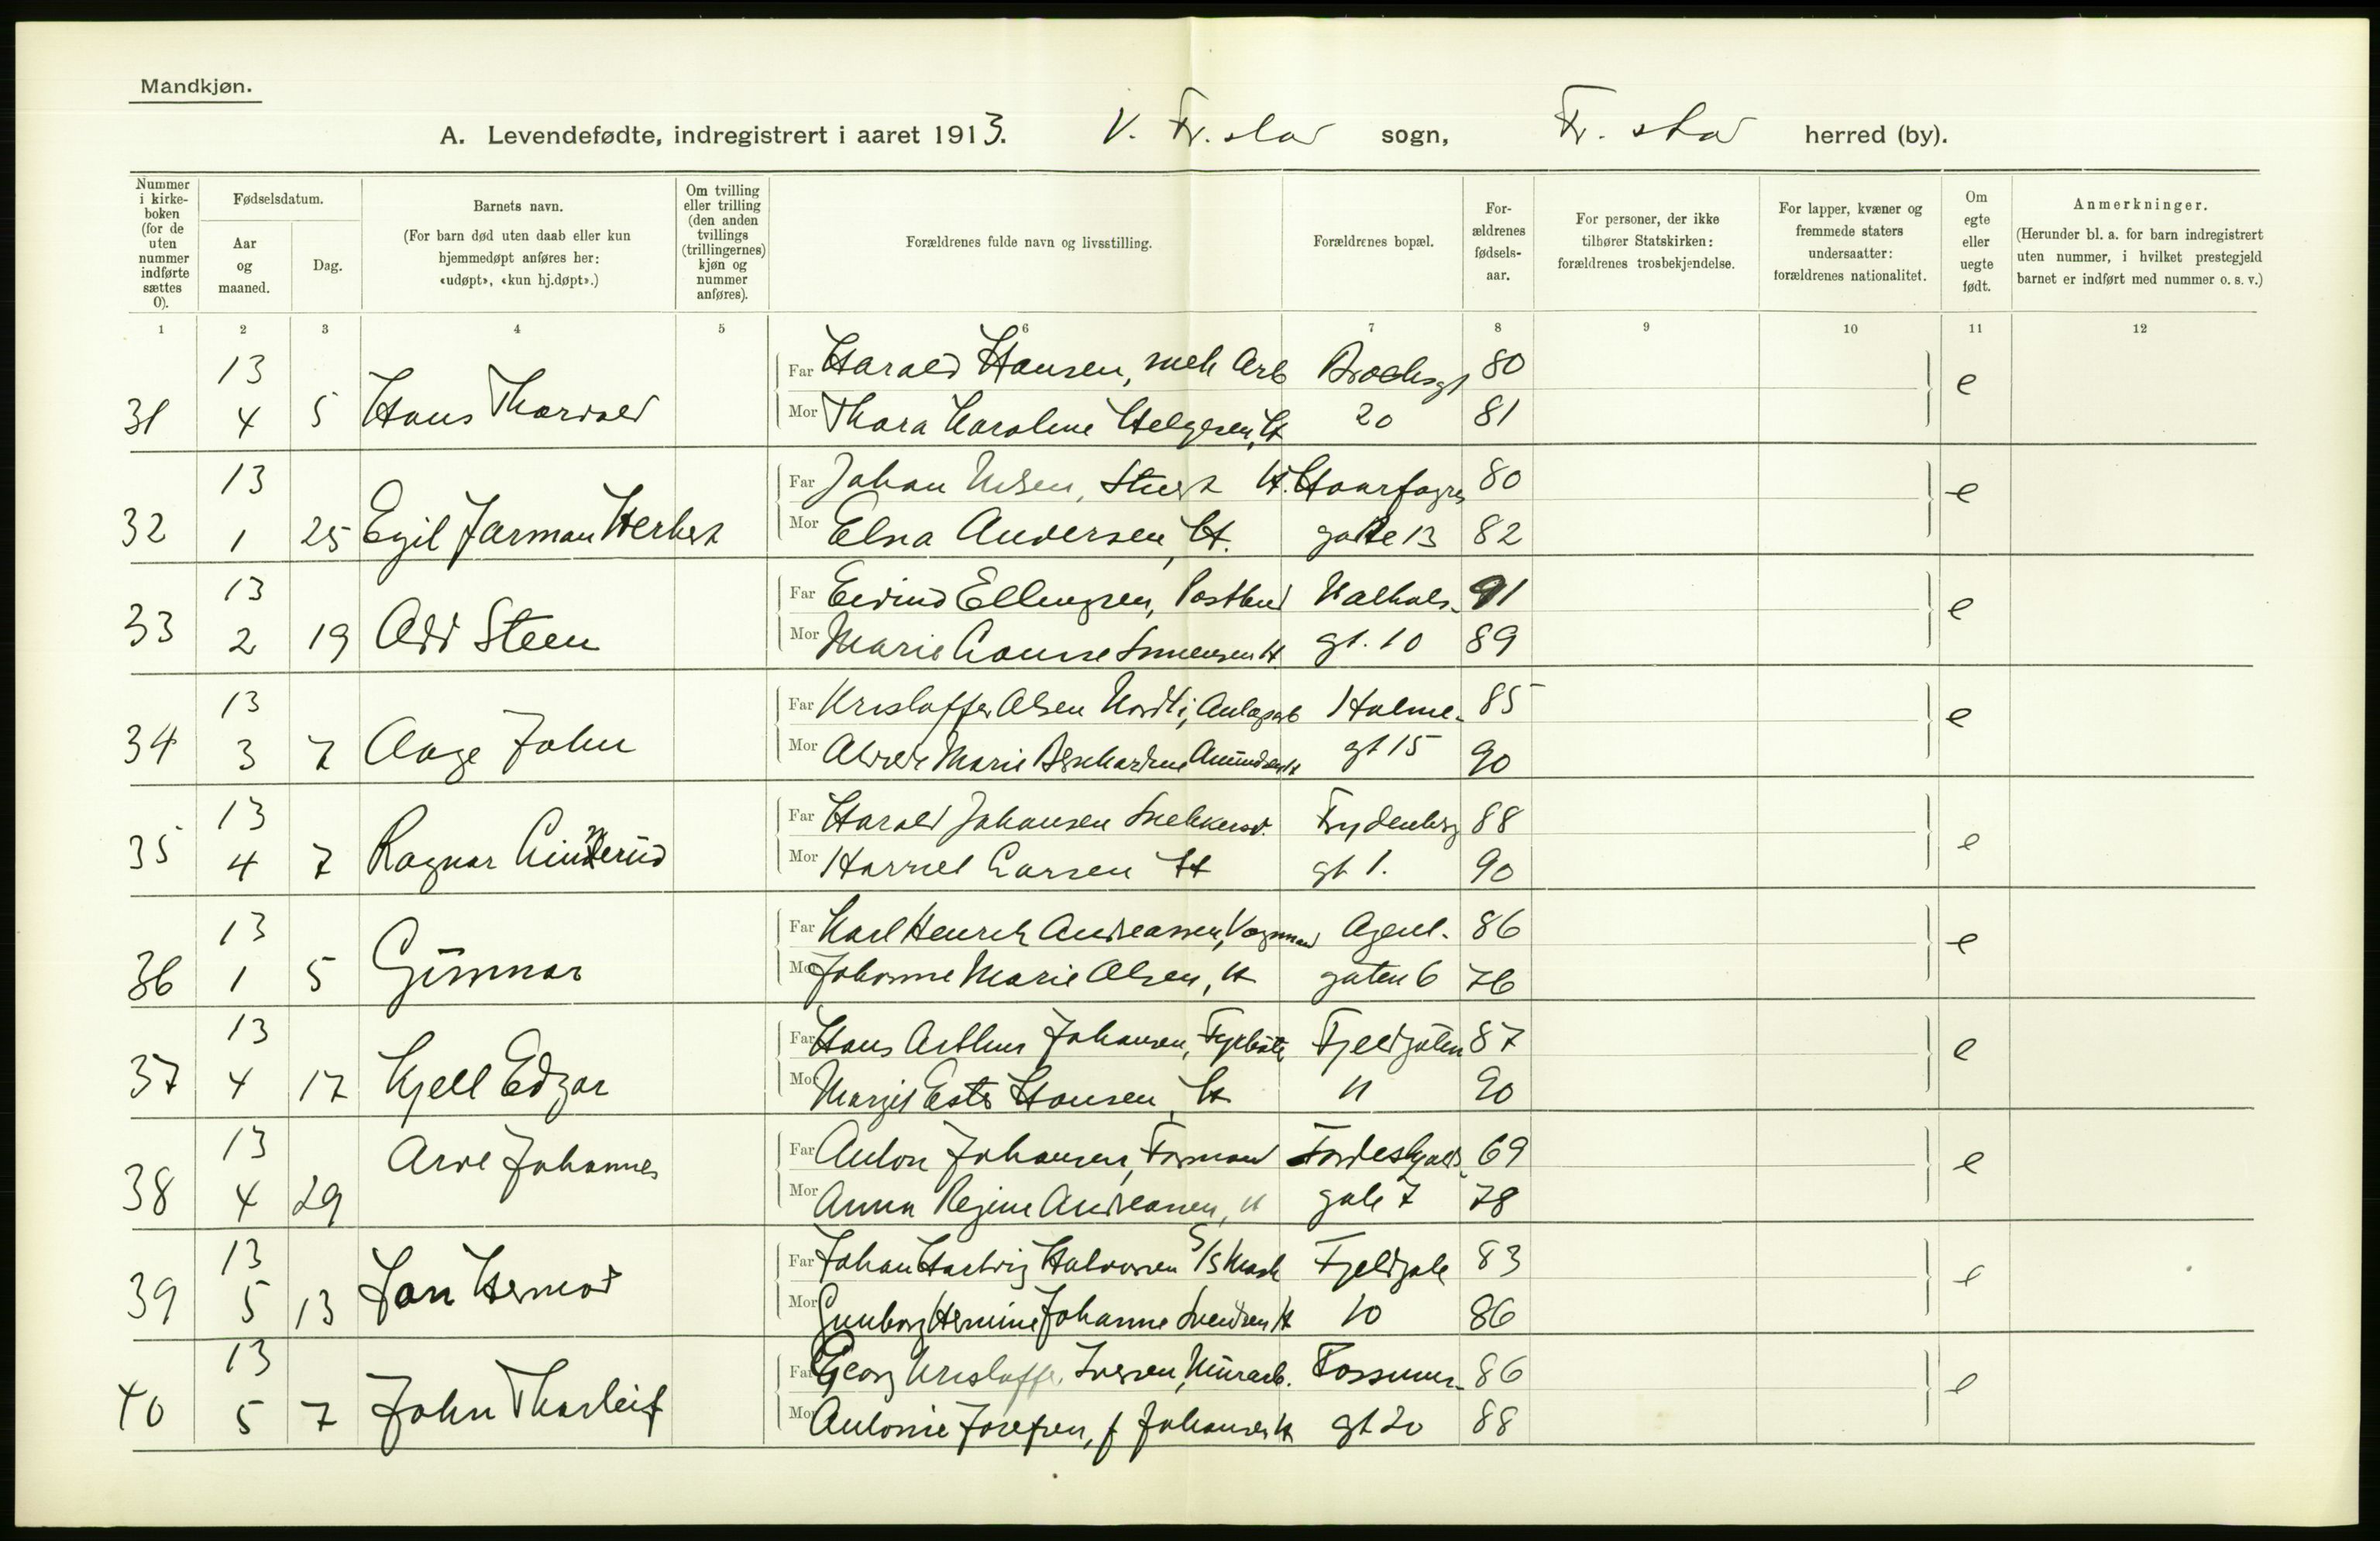 Mandkjøn.
A. Levendefødte, indregistrert i aaret 1913. V. Fr. stad sogn, Fr. stad herred (by).
Nummer i kirke-boken (for de uten nummer indførte sættes 0).
Fødselsdatum.
Aar og maaned.
Dag.
Barnets navn.
(For barn død uten daab eller kun hjemmedøpt anføres her: «udøpt», «kun hj.døpt».)
Om tvilling eller trilling (den anden tvillings (trillingernes) kjøn og nummer anføres).
Forældrenes fulde navn og livsstilling.
Forældrenes bopæl.
For-ældrenes fødsels-aar.
For personer, der ikke tilhører Statskirken: forældrenes trosbekjendelse.
For lapper, kvæner og fremmede staters undersaatter: forældrenes nationalitet.
Om egte eller uegte født.
Anmerkninger.
(Herunder bl. a. for barn indregistrert uten nummer, i hvilket prestegjeld barnet er indført med nummer o. s. v.)
1 2 3 4 5 6 7 8 9 10 11 12
13 Far Harald Hansen, mek Arb Brochsgt 80 e
31 4 5 Hans Thorvald Mor Thora Karoline Helgesen, H 20 81
13 Far Johan Nilsen, H. Haarfagres 80 e
32 1 25 Egil Jarman Herbert Mor Elna Andersen, H. gate 13 82
13 Far Eivind Ellingsen, Postbud Valhals- 91 e
33 2 19 Odd Steen Mor Marie Lovise Simensen H gt. 10 89
13 Far Kristoffer Olsen Nordli, Anlægsarb Holme- 85 e
34 3 7 Aage John Mor Marie Bernhardine Amundsen H gt 15 90
13 Far Harald Johansen Snekkersv. Frydenberg 88 e
35 4 7 Ragnar Mor Harriet Larsen H gt 1. 90
13 Far Karl Henrik Andreassen, Vognmand Agent- 86 e
36 1 5 Gunnar Mor Johanne Marie Olsen, H gaten 6 76
13 Far Hans Arthur Johansen, Fyrbøter Fjeldgaten 87 e
37 4 17 Kjell Edgar Mor Margit Ester Hansen, H 11 90
13 Far Anton Johansen, Formand Fordeskjolds 69 e
38 4 29 Arve Johannes Mor Anna Regine Andreassen, H gate 7 78
13 Far Johan Hartvig Halvorsen S/S Mask Fjeldgate 83 e
39 5 13 Jan Hermod Mor Gunborg Hermine Johanne Svendsen H 10 86
13 Far Georg Kristoffer Iversen, Murarb. Fossums- 86 e
40 5 7 John Thorleif Mor Antonie Josefsen, f Johansen H gt 20 88